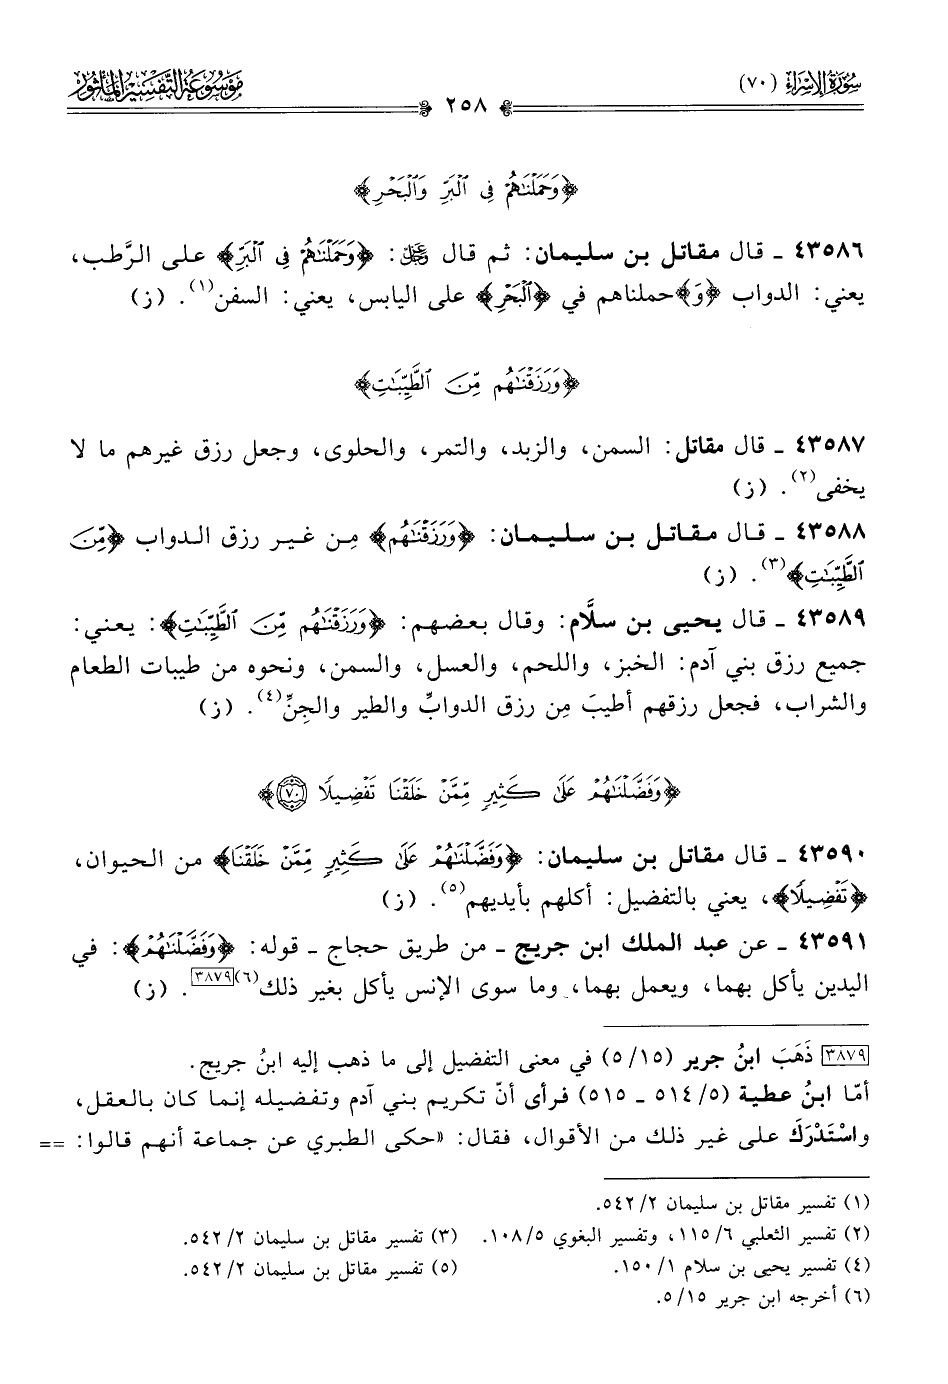 سُورَةُ الإِسْرَاء (٧٠)
٢٥٨
مَوْسُوعَةُ التَّفْسِيرِ الْمَأْثُورِ
﴿وَحَمَلْنَٰهُمْ فِى ٱلْبَرِّ وَٱلْبَحْرِ﴾
٤٣٥٨٦ ـ قال مقاتل بن سليمان: ثم قال ﷿: ﴿وَحَمَلْنَٰهُمْ فِى ٱلْبَرِّ﴾ على الرَّطب،
يعني: الدواب ﴿وَ﴾حملناهم في ﴿ٱلْبَحْرِ﴾ على اليابس، يعني: السفن(١). (ز)
﴿وَرَزَقْنَٰهُم مِّنَ ٱلطَّيِّبَٰتِ﴾
٤٣٥٨٧ ـ قال مقاتل: السمن، والزبد، والتمر، والحلوى، وجعل رزق غيرهم ما لا
يخفى(٢). (ز)
٤٣٥٨٨ ـ قال مقاتل بن سليمان: ﴿وَرَزَقْنَٰهُم﴾ مِن غير رزق الدواب ﴿مِّنَ
ٱلطَّيِّبَٰتِ﴾(٣). (ز)
٤٣٥٨٩ ـ قال يحيى بن سلَّام: وقال بعضهم: ﴿وَرَزَقْنَٰهُم مِّنَ ٱلطَّيِّبَٰتِ﴾: يعني:
جميع رزق بني آدم: الخبز، واللحم، والعسل، والسمن، ونحوه من طيبات الطعام
والشراب، فجعل رزقهم أطيبَ مِن رزق الدوابِّ والطير والجِنِّ(٤). (ز)
﴿وَفَضَّلْنَٰهُمْ عَلَىٰ كَثِيرٍ مِّمَّنْ خَلَقْنَا تَفْضِيلًا ٧٠﴾
٤٣٥٩٠ ـ قال مقاتل بن سليمان: ﴿وَفَضَّلْنَٰهُمْ عَلَىٰ كَثِيرٍ مِّمَّنْ خَلَقْنَا﴾ من الحيوان،
﴿تَفْضِيلًا﴾، يعني بالتفضيل: أكلهم بأيديهم(٥). (ز)
٤٣٥٩١ ـ عن عبد الملك ابن جريج ـ من طريق حجاج ـ قوله: ﴿وَفَضَّلْنَٰهُمْ﴾: في
اليدين يأكل بهما، ويعمل بهما، وما سوى الإنس يأكل بغير ذلك(٦)[٣٨٧٩]. (ز)
[٣٨٧٩] ذَهَبَ ابنُ جرير (١٥/ ٥) في معنى التفضيل إلى ما ذهب إليه ابنُ جريج.
أمّا ابنُ عطية (٥/ ٥١٤ ـ ٥١٥) فرأى أنّ تكريم بني آدم وتفضيله إنما كان بالعقل،
واسْتَدْرَكَ على غير ذلك من الأقوال، فقال: «حكى الطبري عن جماعة أنهم قالوا: ==
(١) تفسير مقاتل بن سليمان ٢/ ٥٤٢.
(٢) تفسير الثعلبي ٦/ ١١٥، وتفسير البغوي ٥/ ١٠٨. (٣) تفسير مقاتل بن سليمان ٢/ ٥٤٢.
(٤) تفسير يحيى بن سلام ١/ ١٥٠. (٥) تفسير مقاتل بن سليمان ٢/ ٥٤٢.
(٦) أخرجه ابن جرير ١٥/ ٥.